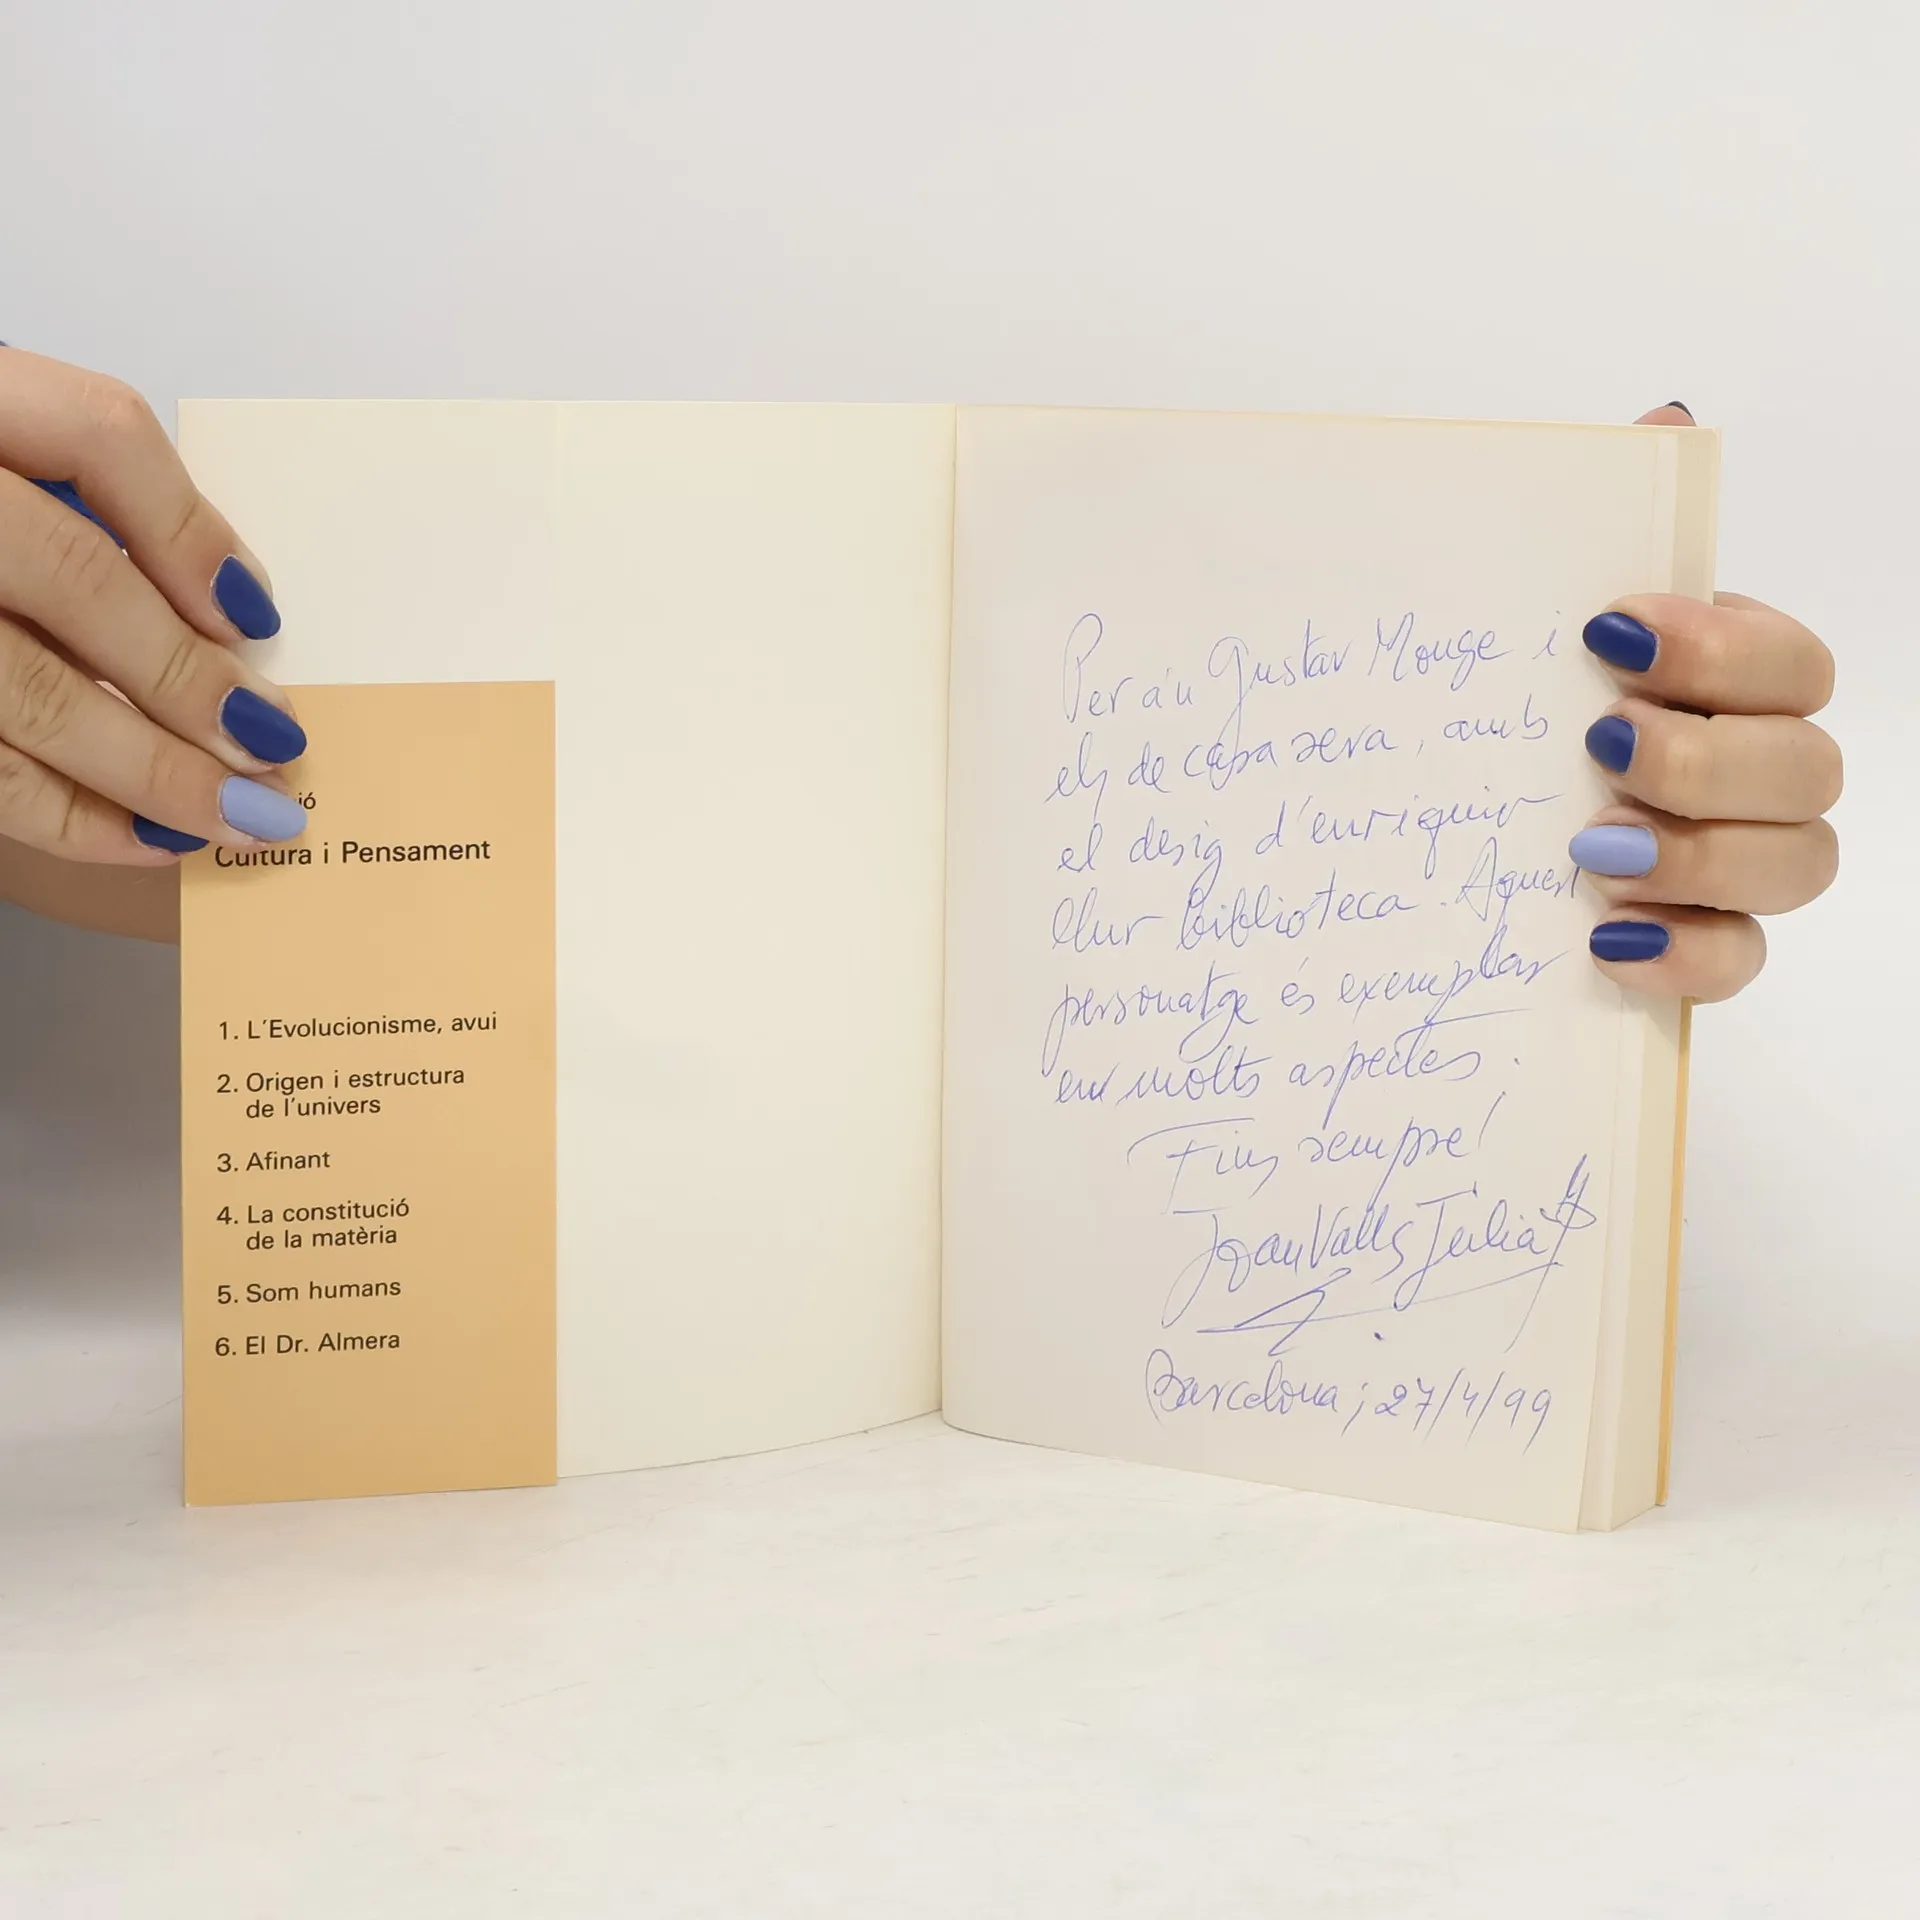 ió
Cultura i Pensament
1. L'Evolucionisme, avui
2. Origen i estructura
de l'univers
3. Afinant
4. La constitució
de la matèria
5. Som humans
6. El Dr. Almera
Per a'n Gustav Monge i
els de casa seva, amb
el desig d'enriquir
llur biblioteca. Aquest
personatge és exemplar
en molts aspectes.
Fins sempre!
Joan Valls Julià
Barcelona; 27/4/99